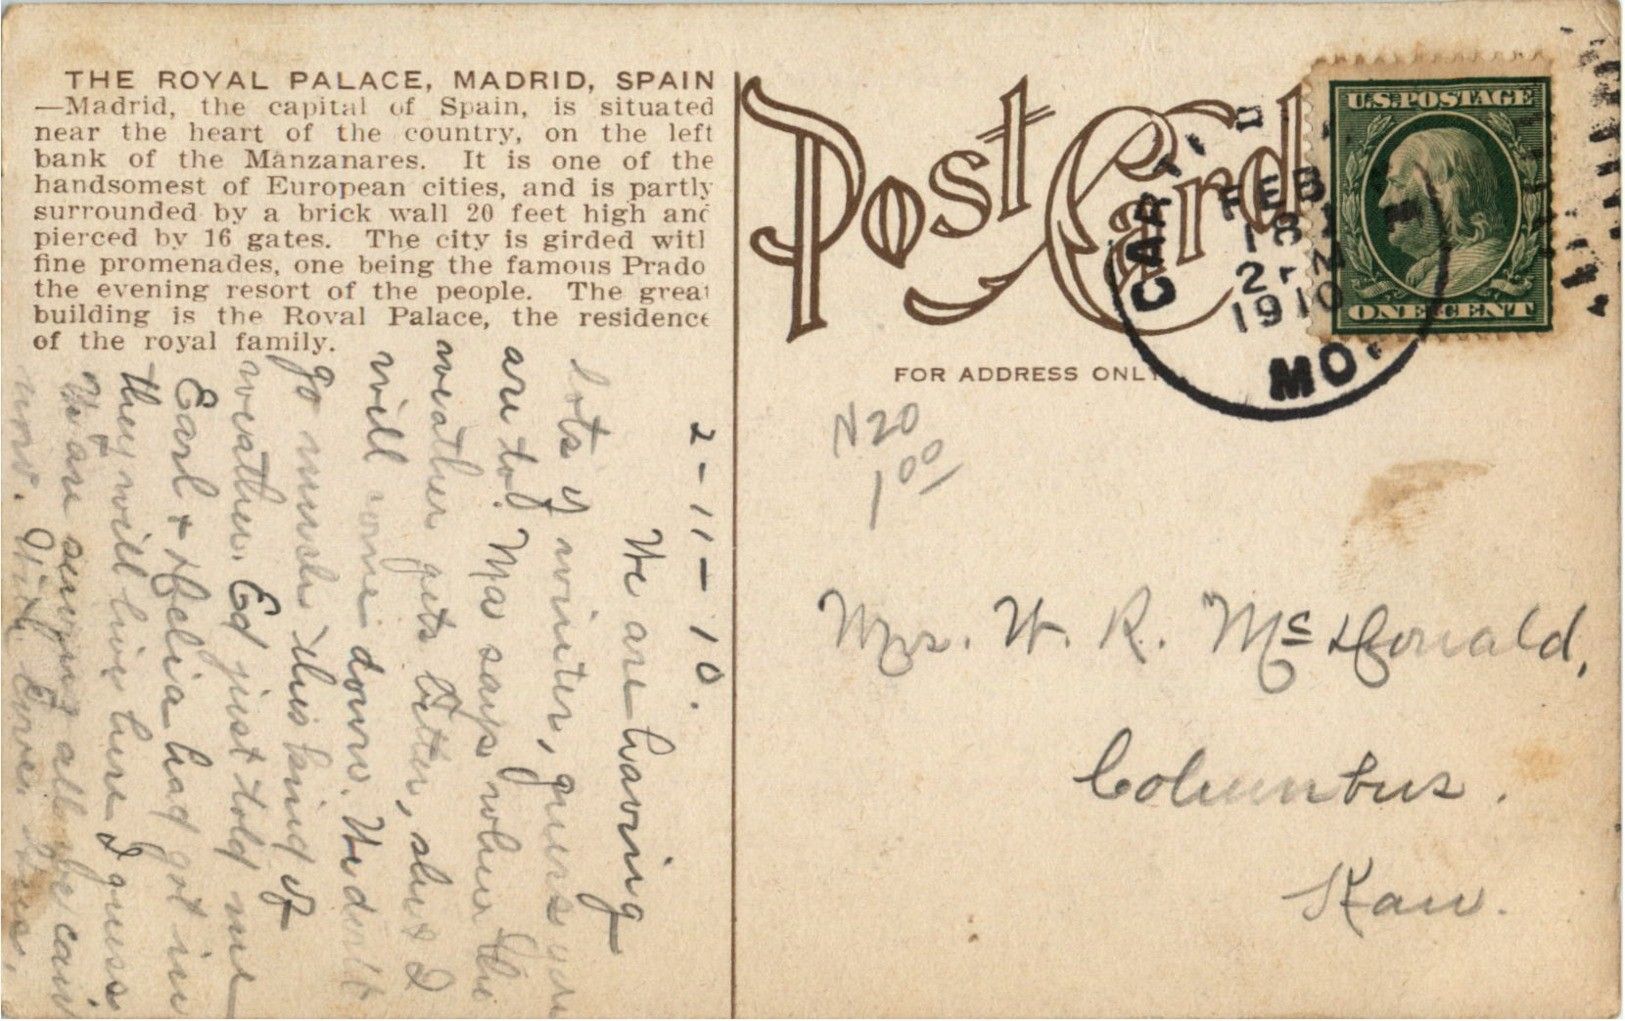 THE ROYAL PALACE, MADRID, SPAIN
—Madrid, the capital of Spain, is situated
near the heart of the country, on the left
bank of the Manzanares. It is one of the
handsomest of European cities, and is partly
surrounded by a brick wall 20 feet high and
pierced by 16 gates. The city is girded with
fine promenades, one being the famous Prado
the evening resort of the people. The great
building is the Royal Palace, the residence
of the royal family.
Post Card
FOR ADDRESS ONLY
U.S. POSTAGE
ONE CENT
CART
FEB
1910
MO.
N20
1 00
Mrs. W. R. McDonald,
Columbus.
Kan.
2-11-10.
We are having
lots of winter, guess you
are to. Ma says when the
weather gets better, she & I
will come down. We don't
go much this kind of
weather. Ed just told me
Earl & had got in
they will live here I guess
We are sewing all we can
now. With Love.